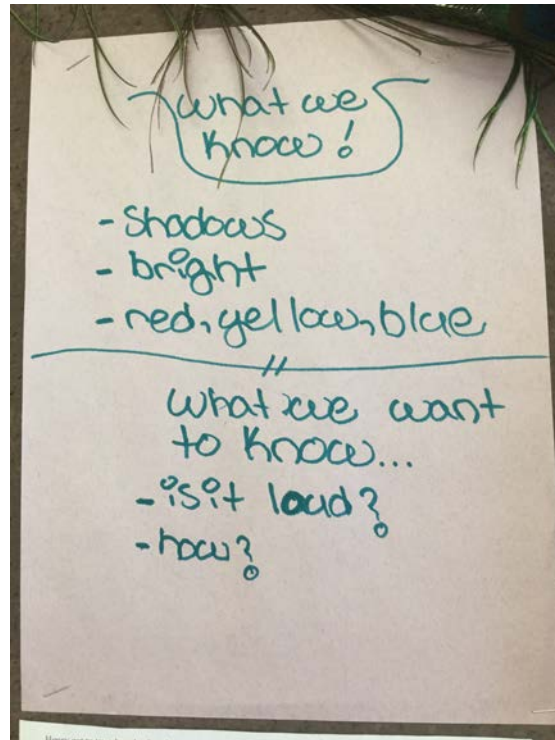 What we
Know!
- Shadows
- bright
- red, yellow, blue
What we want
to Know...
- is it loud?
- how?